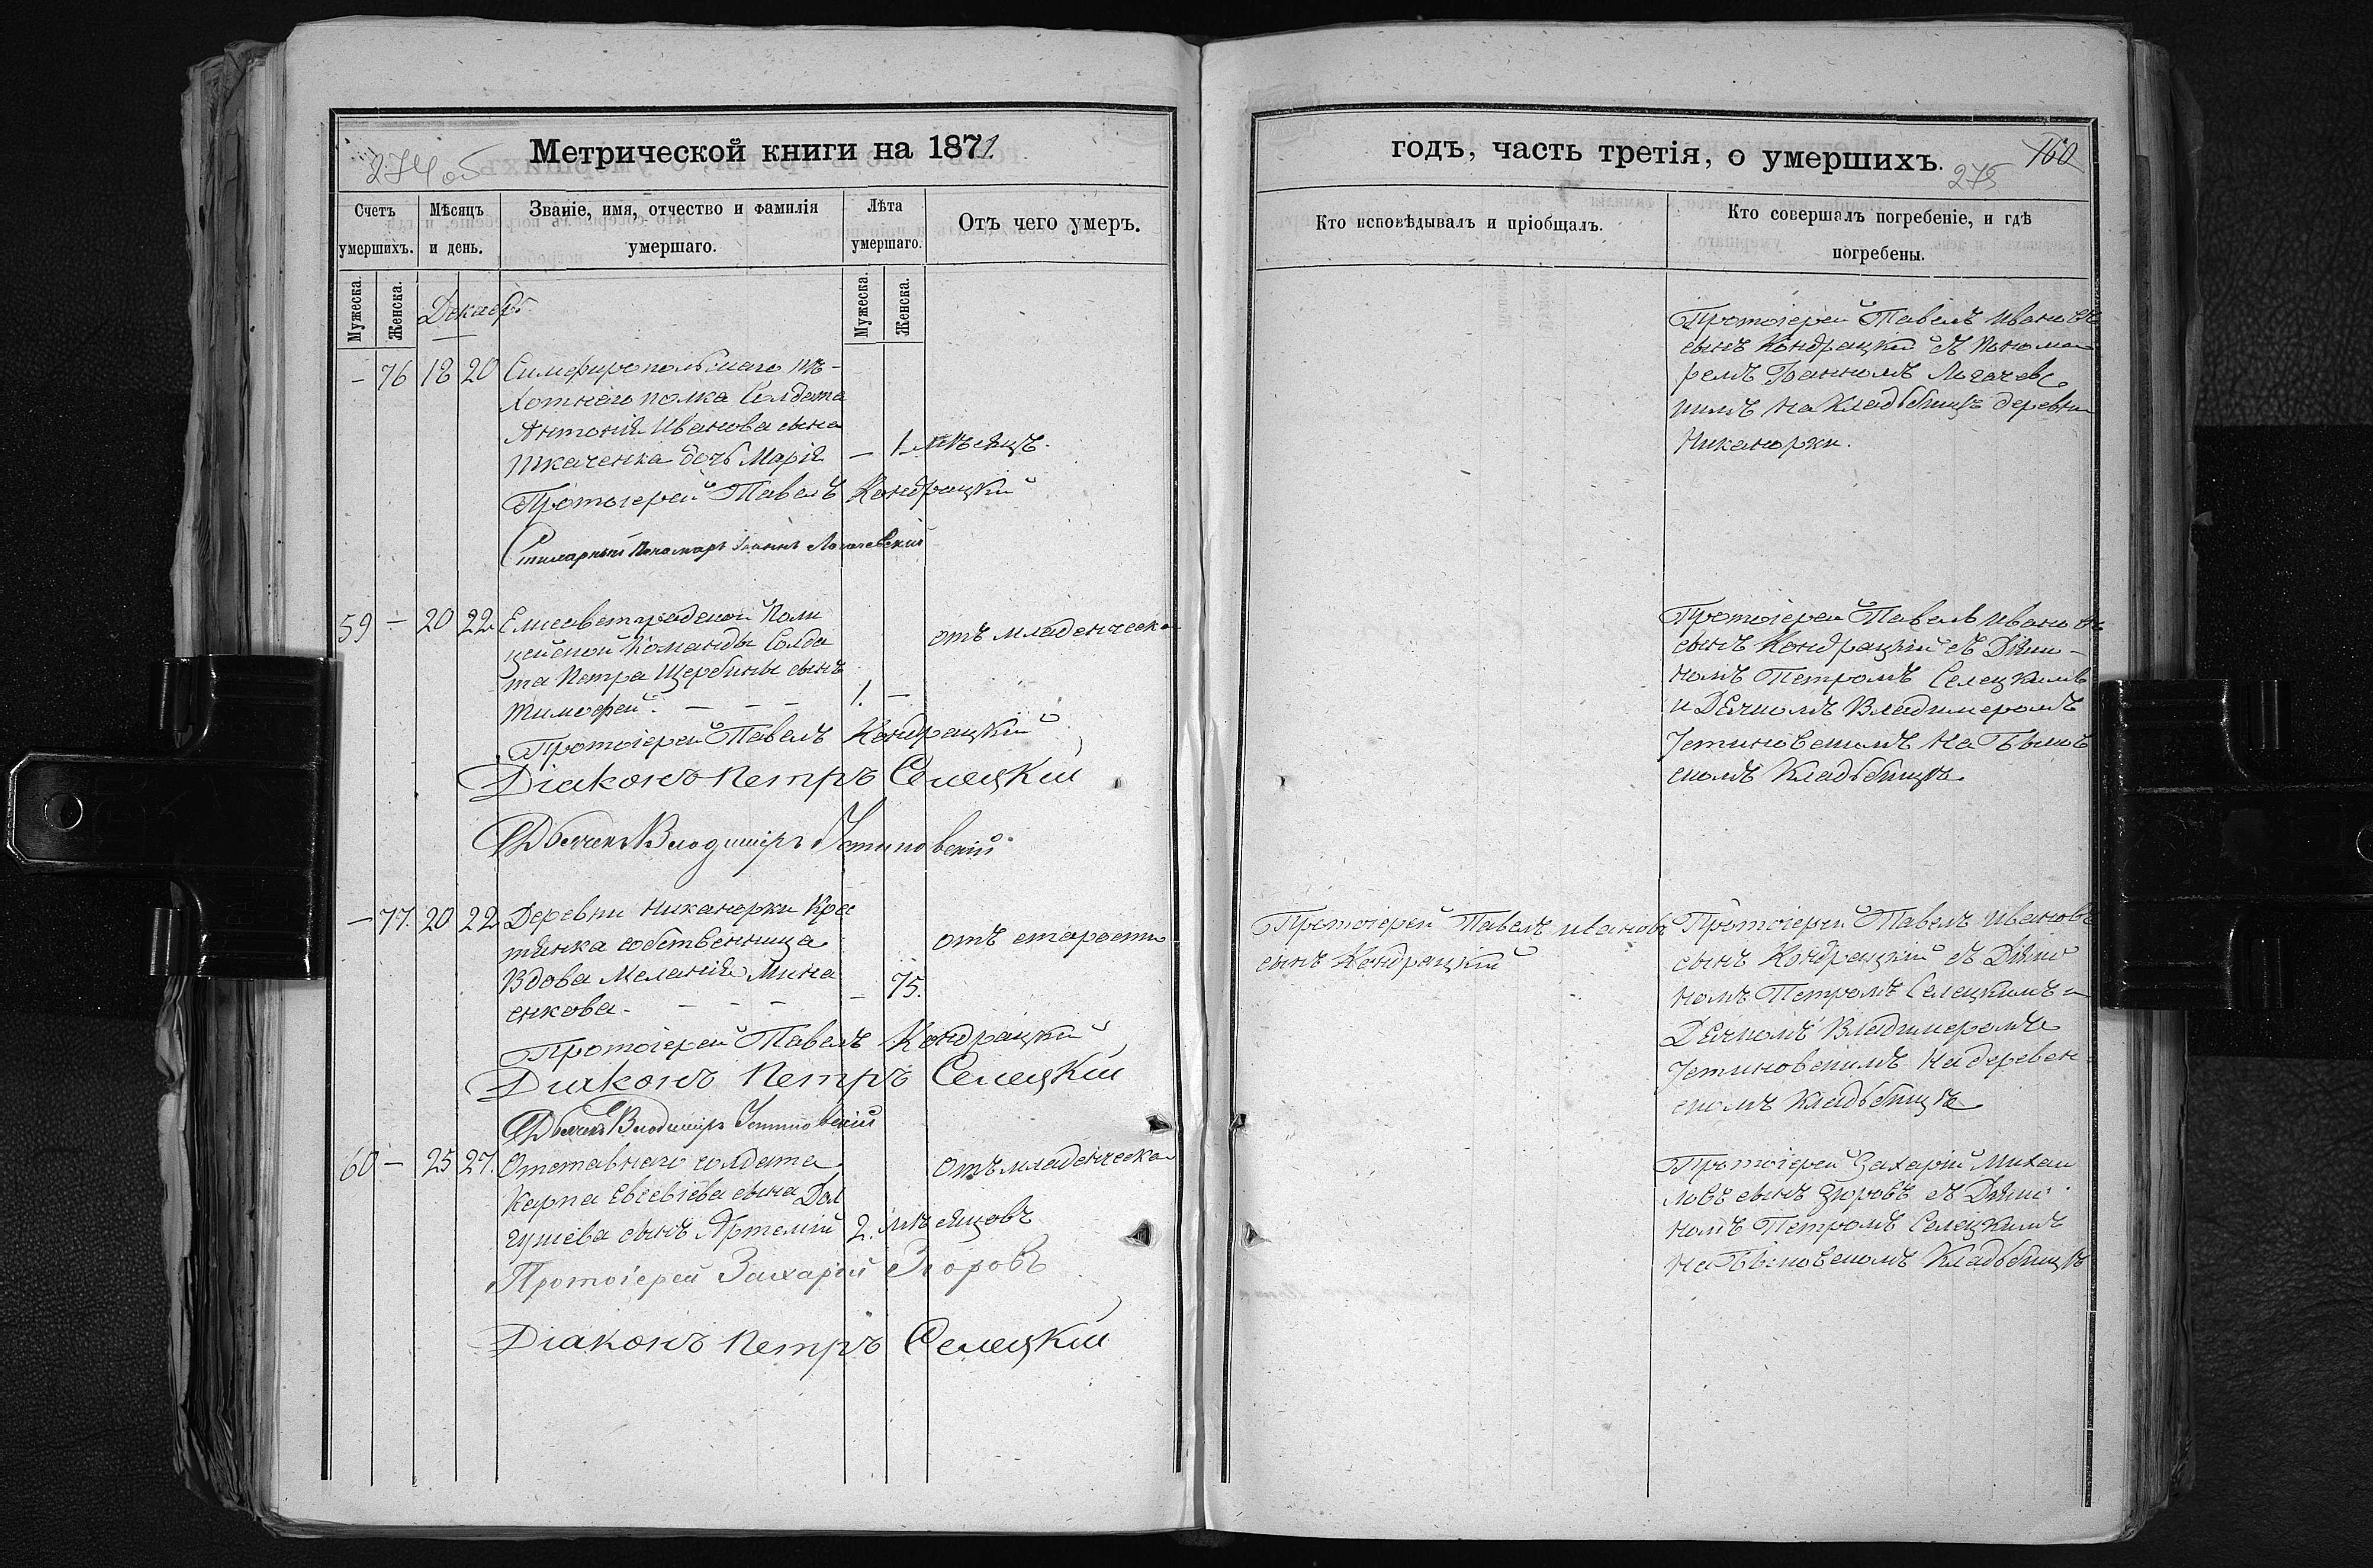 Метрической книги на 1871.
274 об
Счетъ умершихъ.
Мѣсяцъ и день.
Званіе, имя, отчество и фамилія умершаго.
Лѣта умершаго.
Отъ чего умеръ.
Мужеска.
Женска.
Мужеска.
Женска.
Декабрь
– 76 18 20 Симферопольскаго пѣ-
хотнаго полка Солдата
Антонія Иванова сына
Ткаченка дочь Марія – 1. мѣсяцъ.
Протоіерей Павелъ Кондрацкій
Пономарь Іоаннъ Логачевскій
59 – 20 22 Елисаветградской Поли
цейской Команды Солда отъ младенческа
та Петра Щербины сынъ
Тимофей. – – – 1. –
Протоіерей Павелъ Кондрацкій
Діаконъ Петръ Селецкій
Дьячекъ Владиміръ Устиновскій
– 77. 20 22 Деревни Никанорки Крес
тянка собственница отъ старости
Вдова Меланія Мина
енкова. – – – – 75.
Протоіерей Павелъ Кондрацкій
Діаконъ Петръ Селецкій
Дьячекъ Владиміръ Устиновскій
60 – 25 27. Отставнаго солдата отъ младенческа
Карпа Евсевіева сына Дол
гушева сынъ Артемій 2. мѣсяцовъ
Протоіерей Захарій Згоровъ
Діаконъ Петръ Селецкій
годъ, часть третія, о умершихъ.
275
160
Кто исповѣдывалъ и пріобщалъ.
Кто совершалъ погребеніе, и гдѣ погребены.
Протоіерей Павелъ Ивановъ
сынъ Кондрацкій съ Понома
ремъ Іоанномъ Логачевс
кимъ на Кладбищѣ деревни
Никанорки.
Протоіерей Павелъ Ивановъ
сынъ Кондрацкій съ Діако-
номъ Петромъ Селецкимъ
и Дячкомъ Владимеромъ
Устиновскимъ на Быков
скомъ Кладбищѣ
Протоіерей Павелъ Ивановъ
сынъ Кондрацкій
Протоіерей Павелъ Ивановъ
сынъ Кондрацкій съ Діако
номъ Петромъ Селецкимъ и
Дячкомъ Владимеромъ
Устиновскимъ на деревен
скомъ Кладбищѣ
Протоіерей Захарій Михаи
ловъ сынъ Згоровъ съ Діако
номъ Петромъ Селецкимъ
на Быковскомъ Кладбищѣ